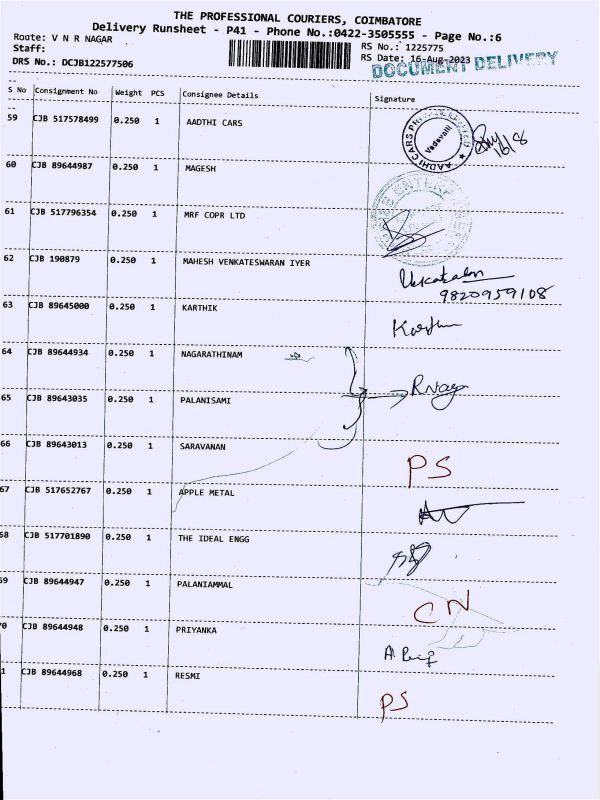 THE PROFESSIONAL COURIERS, COIMBATORE
Delivery Runsheet - P41 - Phone No.:0422-3505555 - Page No.:6
Route: V N R NAGAR RS No.: 1225775
Staff: RS Date: 16-Aug-2023
DRS No.: DCJB122577506 DOCUMENT DELIVERY
S No Consignment No Weight PCS Consignee Details Signature
59 CJB 517578499 0.250 1 AADTHI CARS
AADHI CARS Vadavalli
16/8
60 CJB 89644987 0.250 1 MAGESH
61 CJB 517796354 0.250 1 MRF COPR LTD
62 CJB 190879 0.250 1 MAHESH VENKATESWARAN IYER
9820959108
63 CJB 89645000 0.250 1 KARTHIK
64 CJB 89644934 0.250 1 NAGARATHINAM
R Naga
65 CJB 89643035 0.250 1 PALANISAMI
66 CJB 89643013 0.250 1 SARAVANAN
PS
67 CJB 517652767 0.250 1 APPLE METAL
68 CJB 517701890 0.250 1 THE IDEAL ENGG
69 CJB 89644947 0.250 1 PALANIAMMAL
CN
0 CJB 89644948 0.250 1 PRIYANKA
1 CJB 89644968 0.250 1 RESMI
PS